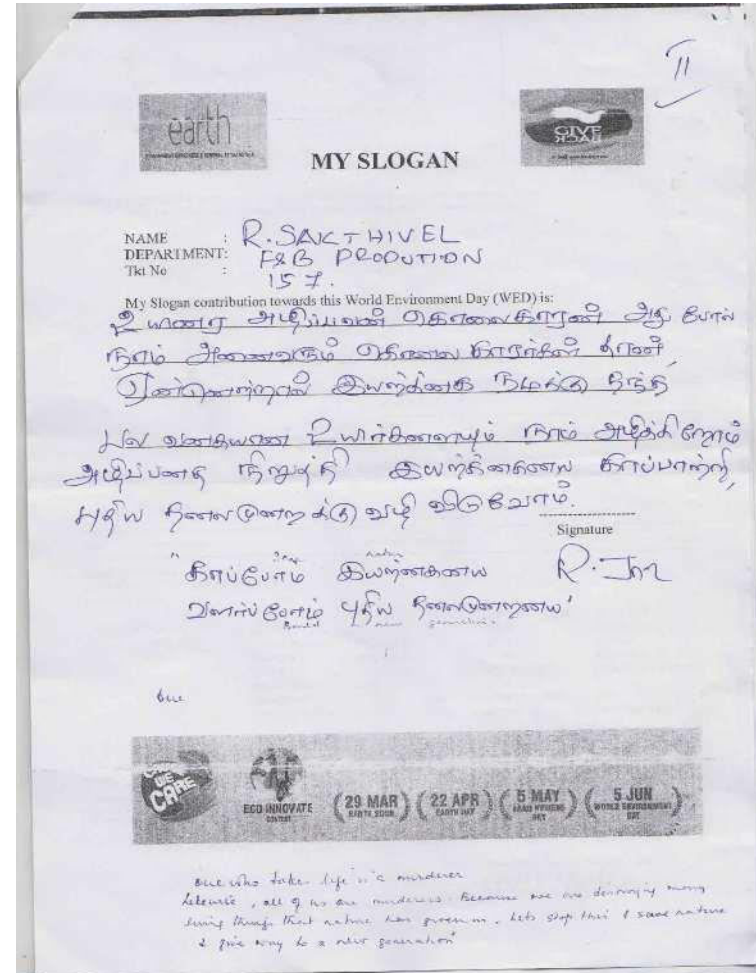 II
earth
GIVE
BACK
MY SLOGAN
NAME : R. SAKTHIVEL
DEPARTMENT: F&B PRODUTION
Tkt No : 157.
My Slogan contribution towards this World Environment Day (WED) is:
உயிரை அழிப்பவன் கொலைகாரன் அது போல்
நாம் அனைவரும் கொலைகாரர்கள் தான்,
ஏன்னென்றால் இயற்கை நமக்கு தந்த
பல வகையான உயிர்களையும் நாம் அழிக்கிறோம்
அழிப்பதை நிறுத்தி இயற்கையை காப்பாற்றி,
புதிய தலைமுறைக்கு வழி விடுவோம்.
Signature
"காப்போம் இயற்கையை
R.
வளர்ப்போம் புதிய தலைமுறையை"
new generation
One
WE
CARE
ECO INNOVATE
CONTEST
29 MAR
EARTH HOUR
22 APR
EARTH DAY
5 MAY
HAND HYGIENE
DAY
5 JUN
WORLD ENVIRONMENT
DAY
One who takes life is a murderer
Likewise, all of us are murderers. Because we are destroying many
living things that nature has given us. Lets stop this & save nature
& give way to a new generation"